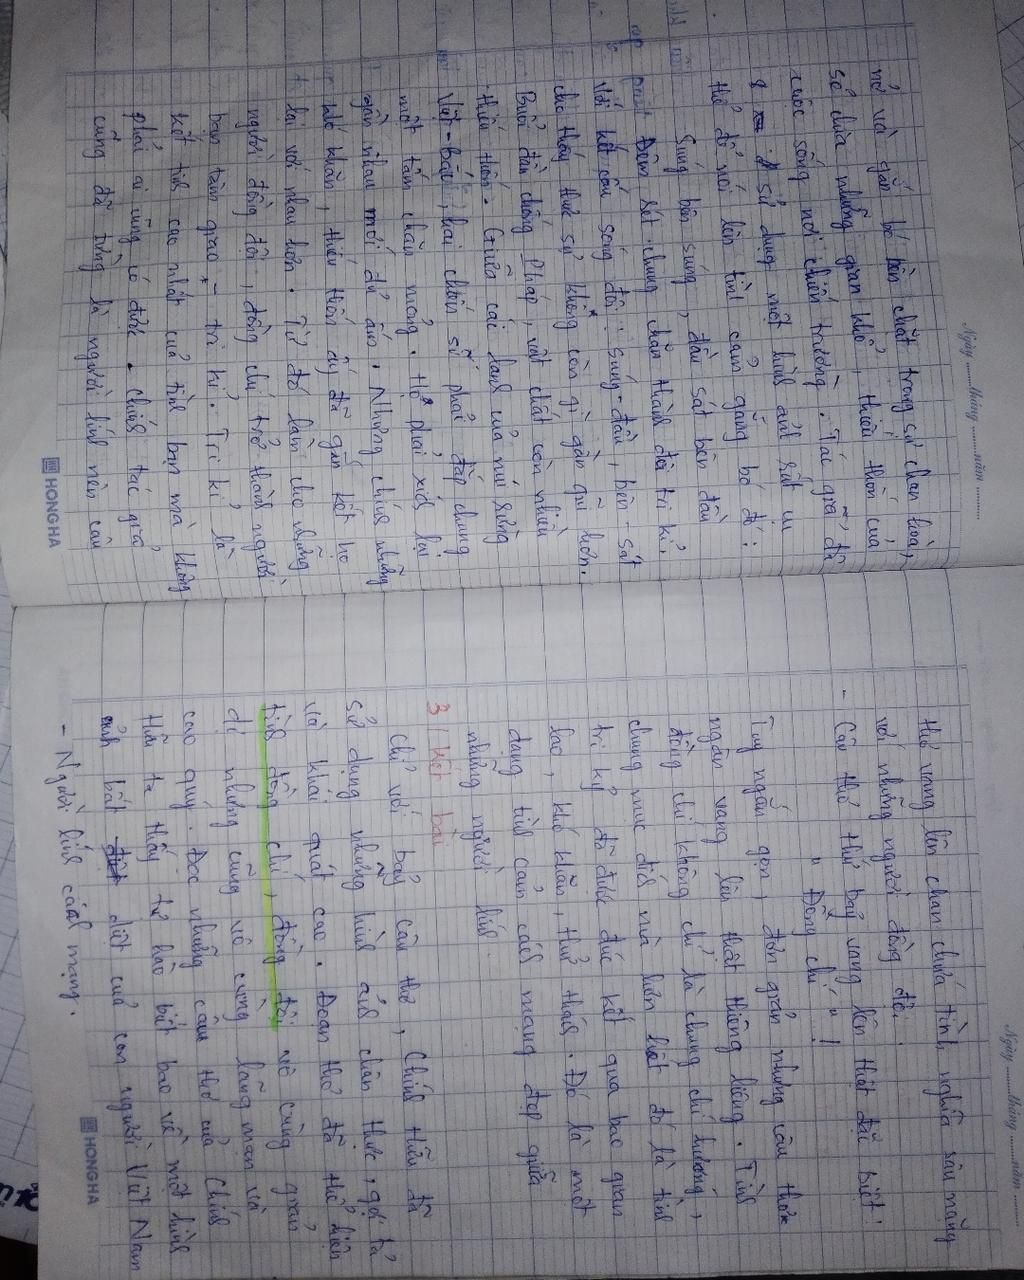 Ngày ........ tháng ........ năm ........
nở và gắn bó bền chặt trong sự chan hoà,
sẻ chia những gian khổ, thiếu thốn của
cuộc sống nơi chiến trường. Tác giả đã
sử dụng một hình ảnh rất cụ
thể để nói lên tình cảm gắng bó đó:
Súng bên súng, đầu sát bên đầu
Đêm rét chung chăn thành đôi tri kỉ,
Với kết cấu sóng đôi: súng-đầu, bên-sát
cho thấy thực sự không còn gì gần gũi hơn.
Buổi đầu chống Pháp, vật chất còn nhiều
thiếu thốn. Giữa cái lạnh của núi rừng
Việt-Bắc, hai chiến sĩ phải đắp chung
một tấm chăn mỏng. Họ phải xích lại
gần nhau mới đủ ấm. Nhưng chính những
khó khăn, thiếu thốn ấy đã gắn kết họ
lại với nhau hơn. Từ đó làm cho những
người đồng đội, đồng chí trở thành người
bạn tâm giao - tri kỉ. Tri kỉ là
kết tinh cao nhất của tình bạn mà không
phải ai cũng có được. Chính tác giả
cũng đã từng là người lính nên câu
HONG HA
Ngày ........ tháng ........ năm ........
thơ vang lên chan chứa tình, nghĩa sâu nặng
với những người đồng đội.
- Câu thơ thứ bảy vang lên thật đặc biệt:
" Đồng chí " !
Tuy ngắn gọn, đơn giản nhưng câu thơ
ngân vang lên thật thiêng liêng. Tình
đồng chí không chỉ là chung chí hướng,
chung mục đích mà hơn hết đó là tình
tri kỷ đã được đúc kết qua bao gian
lao, khó khăn, thử thách. Đó là một
dạng tình cảm cách mạng đẹp giữa
những người lính.
3/ Kết bài
Chỉ với bảy câu thơ, Chính Hữu đã
sử dụng những hình ảnh chân thực, gợi tả
và khái quát cao. Đoạn thơ đã thể hiện
tình đồng chí, đồng đội vô cùng giản
dị nhưng cũng vô cùng lãng mạn và
cao quý. Đọc những câu thơ của Chính
Hữu ta thấy tự hào biết bao về một hình
ảnh bất diệt của con người Việt Nam
- Người lính cách mạng.
HONG HA